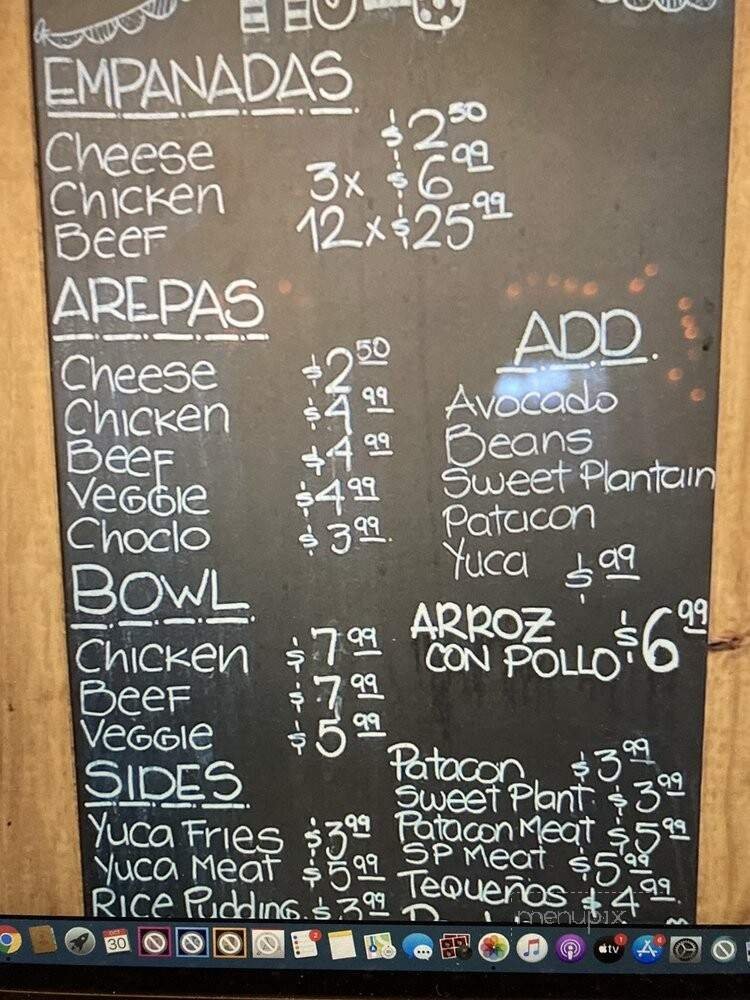 EMPANADAS
Cheese $2.50
Chicken 3x $6.99
Beef 12x $25.99
AREPAS
Cheese $2.50
Chicken $4.99
Beef $4.99
Veggie $4.99
Choclo $3.99
ADD
Avocado
Beans
Sweet Plantain
Patacon
Yuca $.99
BOWL
Chicken $7.99
Beef $7.99
Veggie $5.99
ARROZ
CON POLLO $6.99
SIDES
Yuca Fries $3.99
Yuca Meat $5.99
Rice Pudding $3.99
Patacon $3.99
Sweet Plant. $3.99
Patacon Meat $5.99
SP Meat $5.99
Tequeños $4.99
menupix
30
tv